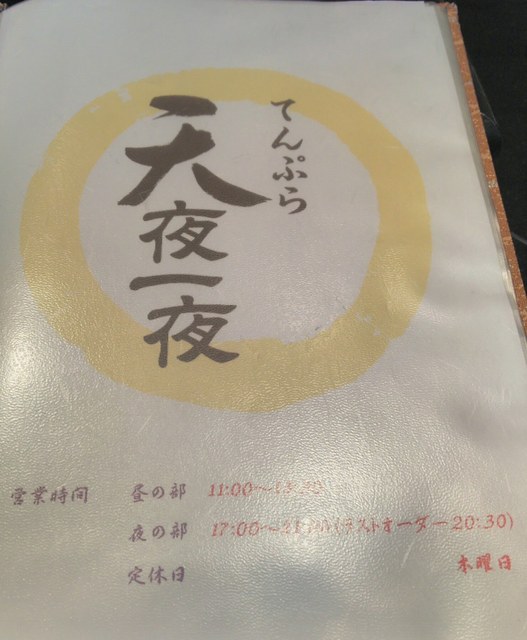 てんぷら
天夜一夜
営業時間 昼の部 11:00～
夜の部 17:00～ (ラストオーダー20:30)
定休日 木曜日